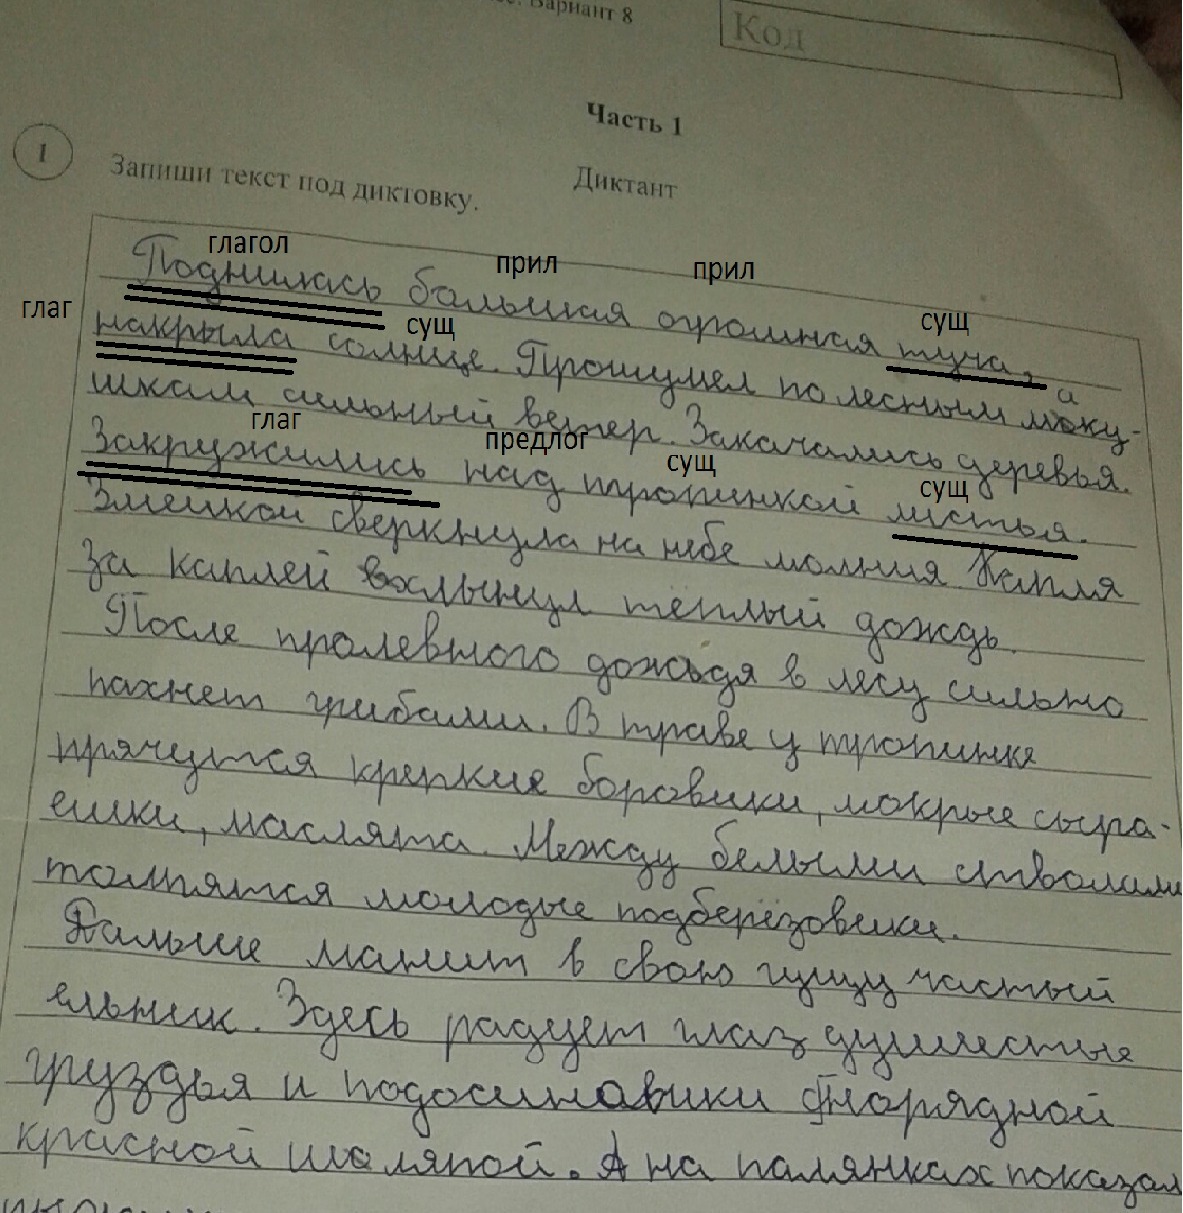 Вариант 8
Код
Часть 1
1 Запиши текст под диктовку.
Диктант
глагол прил прил сущ
Поднилась большая огромная туча,
глаг сущ
накрыла солнце. Прошумел по лесным маку-
шкам сильный ветер. Закачались деревья.
глаг предлог сущ сущ
Закружились над тропинкой листья.
Змейкой сверкнула на небе молния Капля
за каплей хлынул тёплый дождь.
После пролевного дождя в лесу сильно
пахнет грибами. В траве у тропинке
прячутся крепкие боровики, мокрые сыра-
ешки, маслята. Между белыми стволами
толпятся молодые подберёзовики.
Дальше манит в свою гущу частый
ельник. Здесь радует глаз душистые
груздья и подосинавики нарядной
красной шаляпой. А на палянках показал